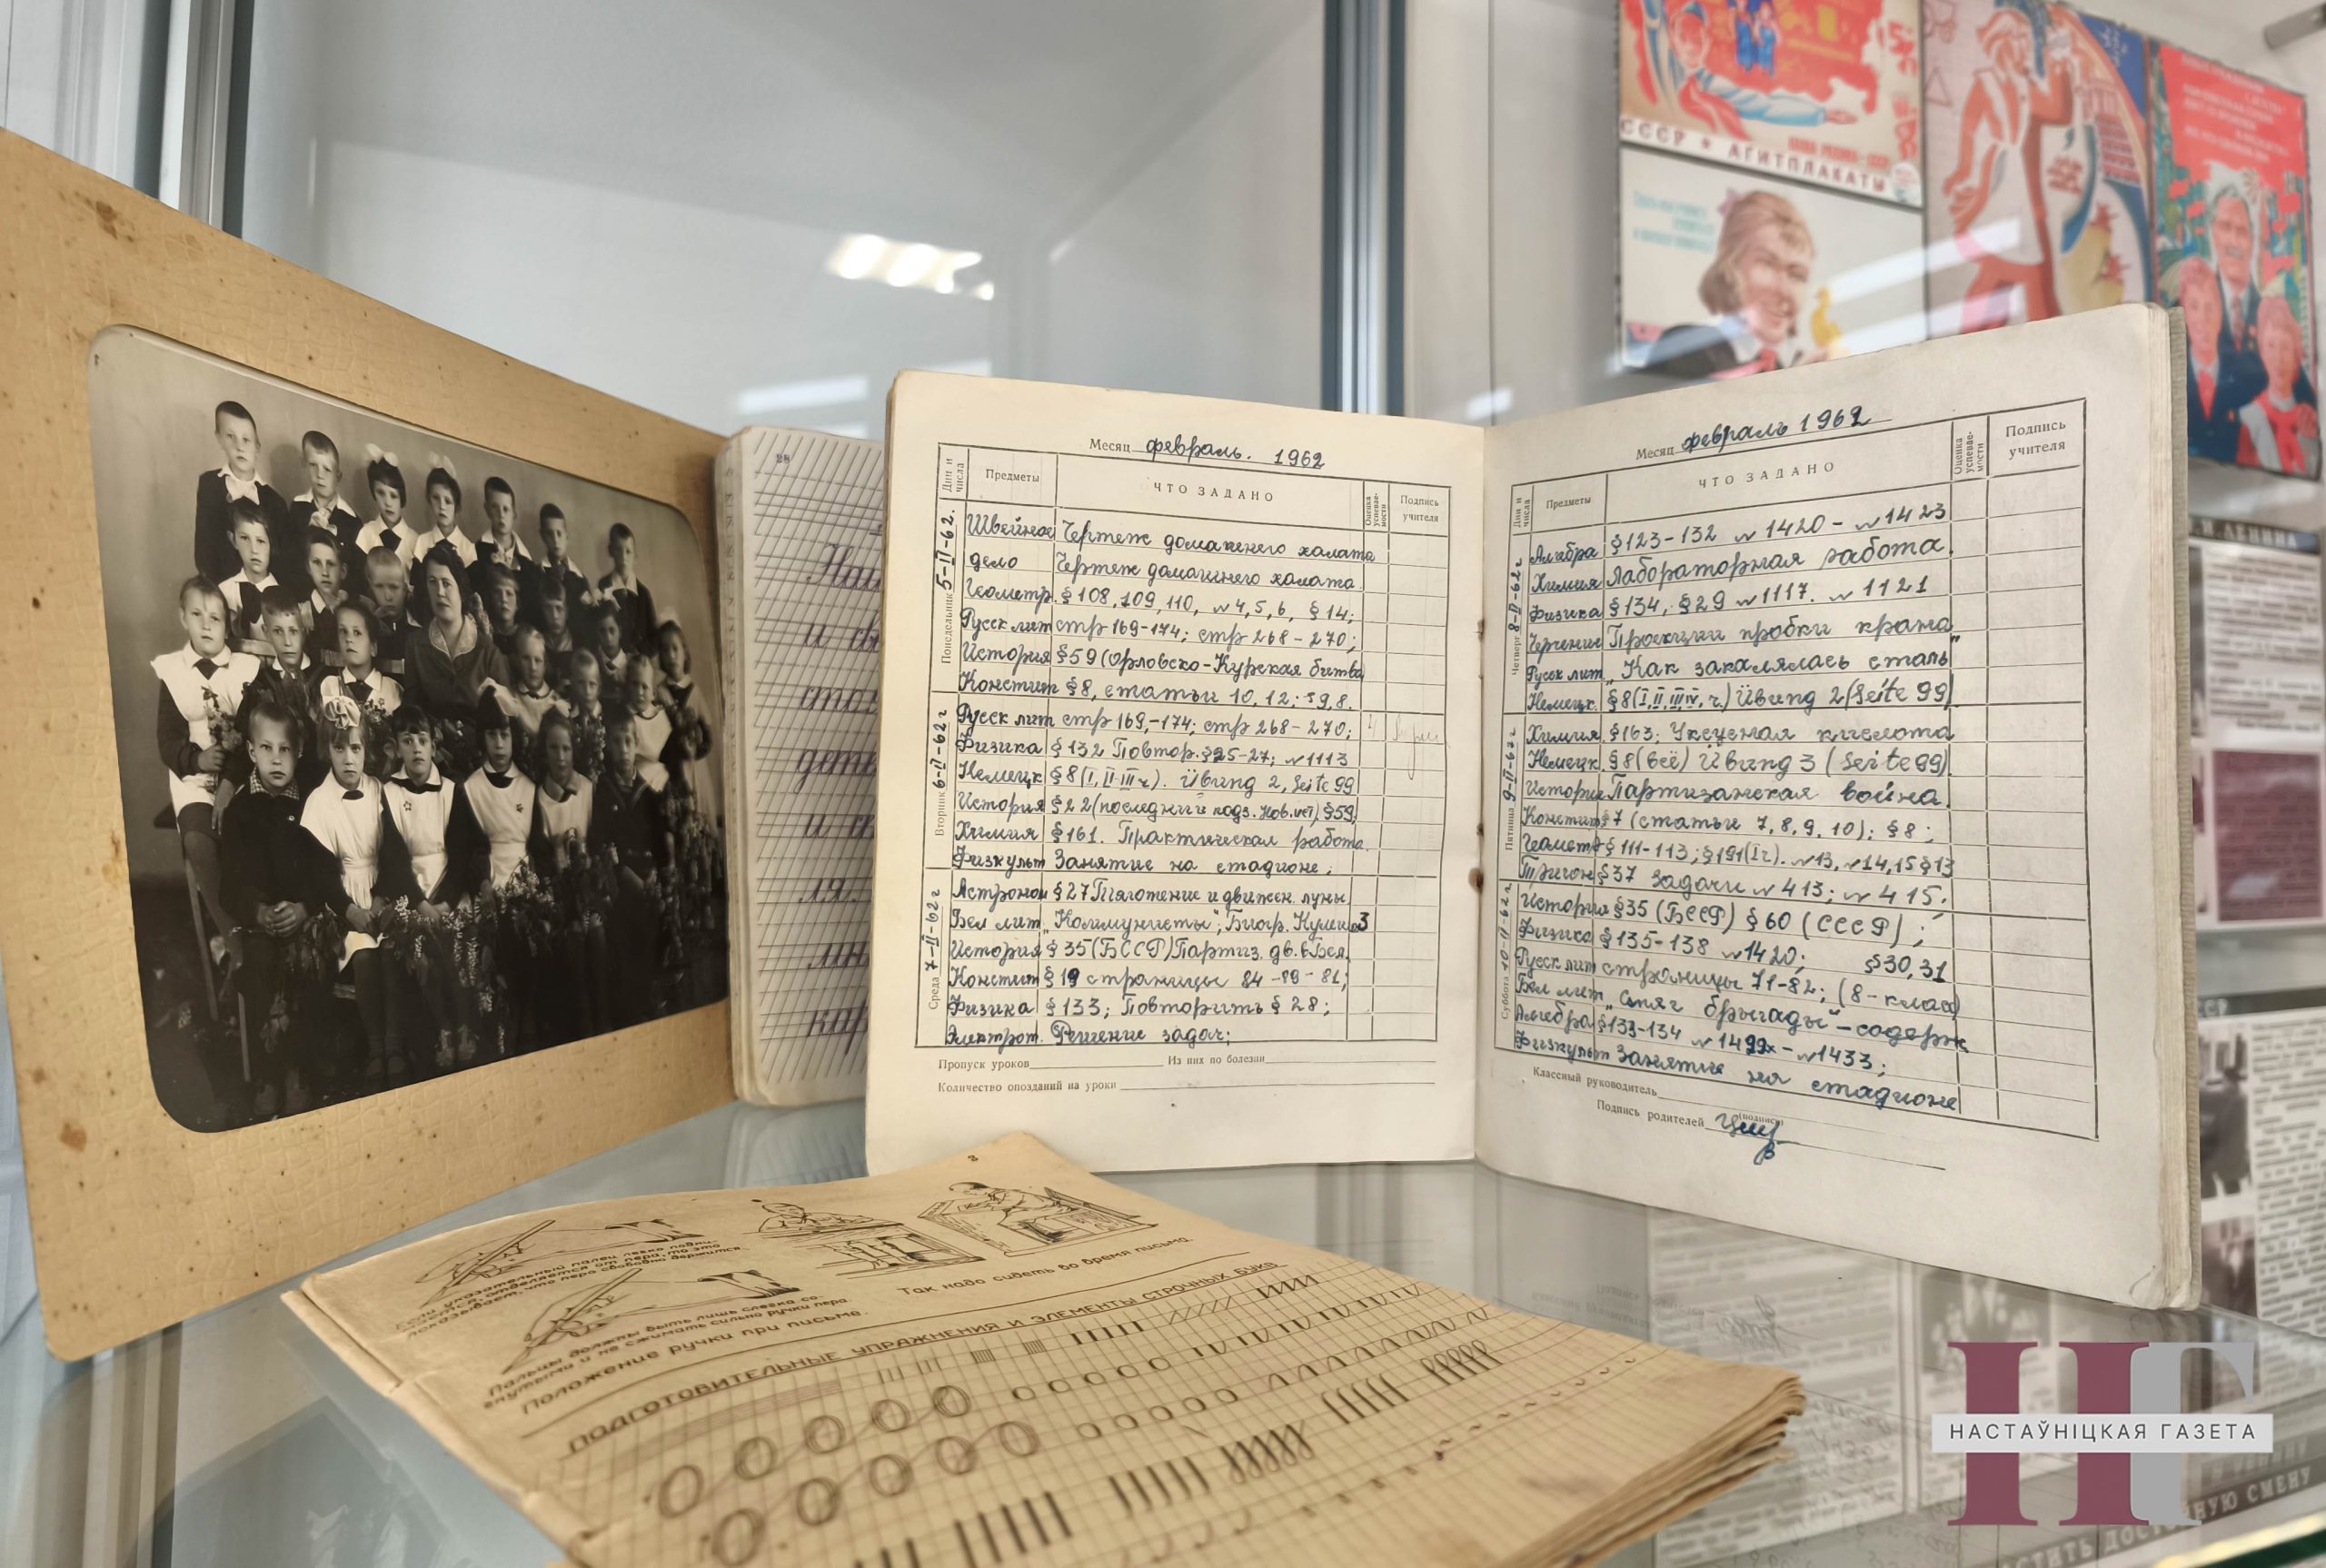 СССР ★ АГИТПЛАКАТЫ
28
Месяц февраль. 1962
Дни и числа
Предметы
ЧТО ЗАДАНО
Оценка успевае-мости
Подпись учителя
Понедельник 5-II-62.
Швейное Чертеж домашнего халата
дело Чертеж домашнего халата.
Геометр. § 108, 109, 110, № 4, 5, 6, § 14;
Русск лит стр 169-174; стр 268-270;
История § 59 (Орловско-Курская битва
Констит § 8, статьи 10, 12; § 9, 8.
Вторник 6-II-62 г
Русск лит стр 169,-174; стр 268-270; 4
Физика § 132 Повтор. §25-27; №1113
Немецк § 8 (I, II-III ч). Übung 2, Seite 99
История § 22 (последний подз. Нов.ист), § 59,
Химия § 161. Практическая работа.
Физкульт Занятие на стадионе;
Среда 7-II-62 г
Астроном § 27 Тяготение и движен. луны
Бел лит „Коммунисты“; Биогр. Кулеш 3
История § 35 (БССР) Партиз. дв. в Бел.
Констит § 19 страницы 84-89-81;
Физика § 133; Повторить § 28;
Электрот. Решение задач;
Пропуск уроков Из них по болезни
Количество опозданий на уроки
Месяц февраль 1962
Дни и числа
Предметы
ЧТО ЗАДАНО
Оценка успевае-мости
Подпись учителя
Четверг 8-II-62 г
Алгебра § 123-132 № 1420 - № 1423
Химия Лабораторная работа
Физика § 134, § 29 № 1117. № 1121
Черчение Проекции пробки крана
Русск лит „Как закалялась сталь“
Немецк. § 8 (I, II, III, IV, ч.) Übung 2 (Seite 99)
Пятница 9-II-62 г
Химия § 163; Уксусная кислота
Немецк § 8 (всё) Übung 3 (Seite 99)
История Партизанская война.
Констит § 7 (статьи 7, 8, 9, 10); § 8;
Геометр § 111-113; § 191 (I ч). № 13, № 14, 15 § 13
Тригон § 37 задачи № 413; № 415;
Суббота 10-II-62 г
История § 35 (БССР) § 60 (СССР);
Физика § 135-138 № 1420; § 30, 31
Русск лит страницы 71-82; (8-класс)
Бел лит „Сцяг брыгады“ - содерж
Алгебра § 133-134 № 1422 - № 1433;
Физкульт Занятие на стадионе
Классный руководитель
(подпись)
Подпись родителей
3
Так надо сидеть во время письма.
Пальцы должны быть лишь слегка со-
гнутыми и не сжимать сильно ручки пера.
Положение ручки при письме.
ПОДГОТОВИТЕЛЬНЫЕ УПРАЖНЕНИЯ И ЭЛЕМЕНТЫ СТРОЧНЫХ БУКВ
НГ
НАСТАЎНІЦКАЯ ГАЗЕТА